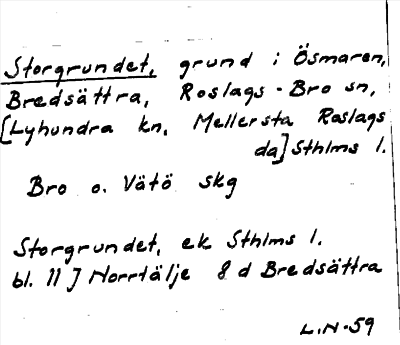 Storgrundet, grund i Ösmaren,
Bredsättra, Roslags-Bro sn,
[Lyhundra kn, Mellersta Roslags
da] Sthlms l.
Bro o. Vätö skg
Storgrundet, ek Sthlms l.
bl. 11] Norrtälje 8 d Bredsättra
L.N-59